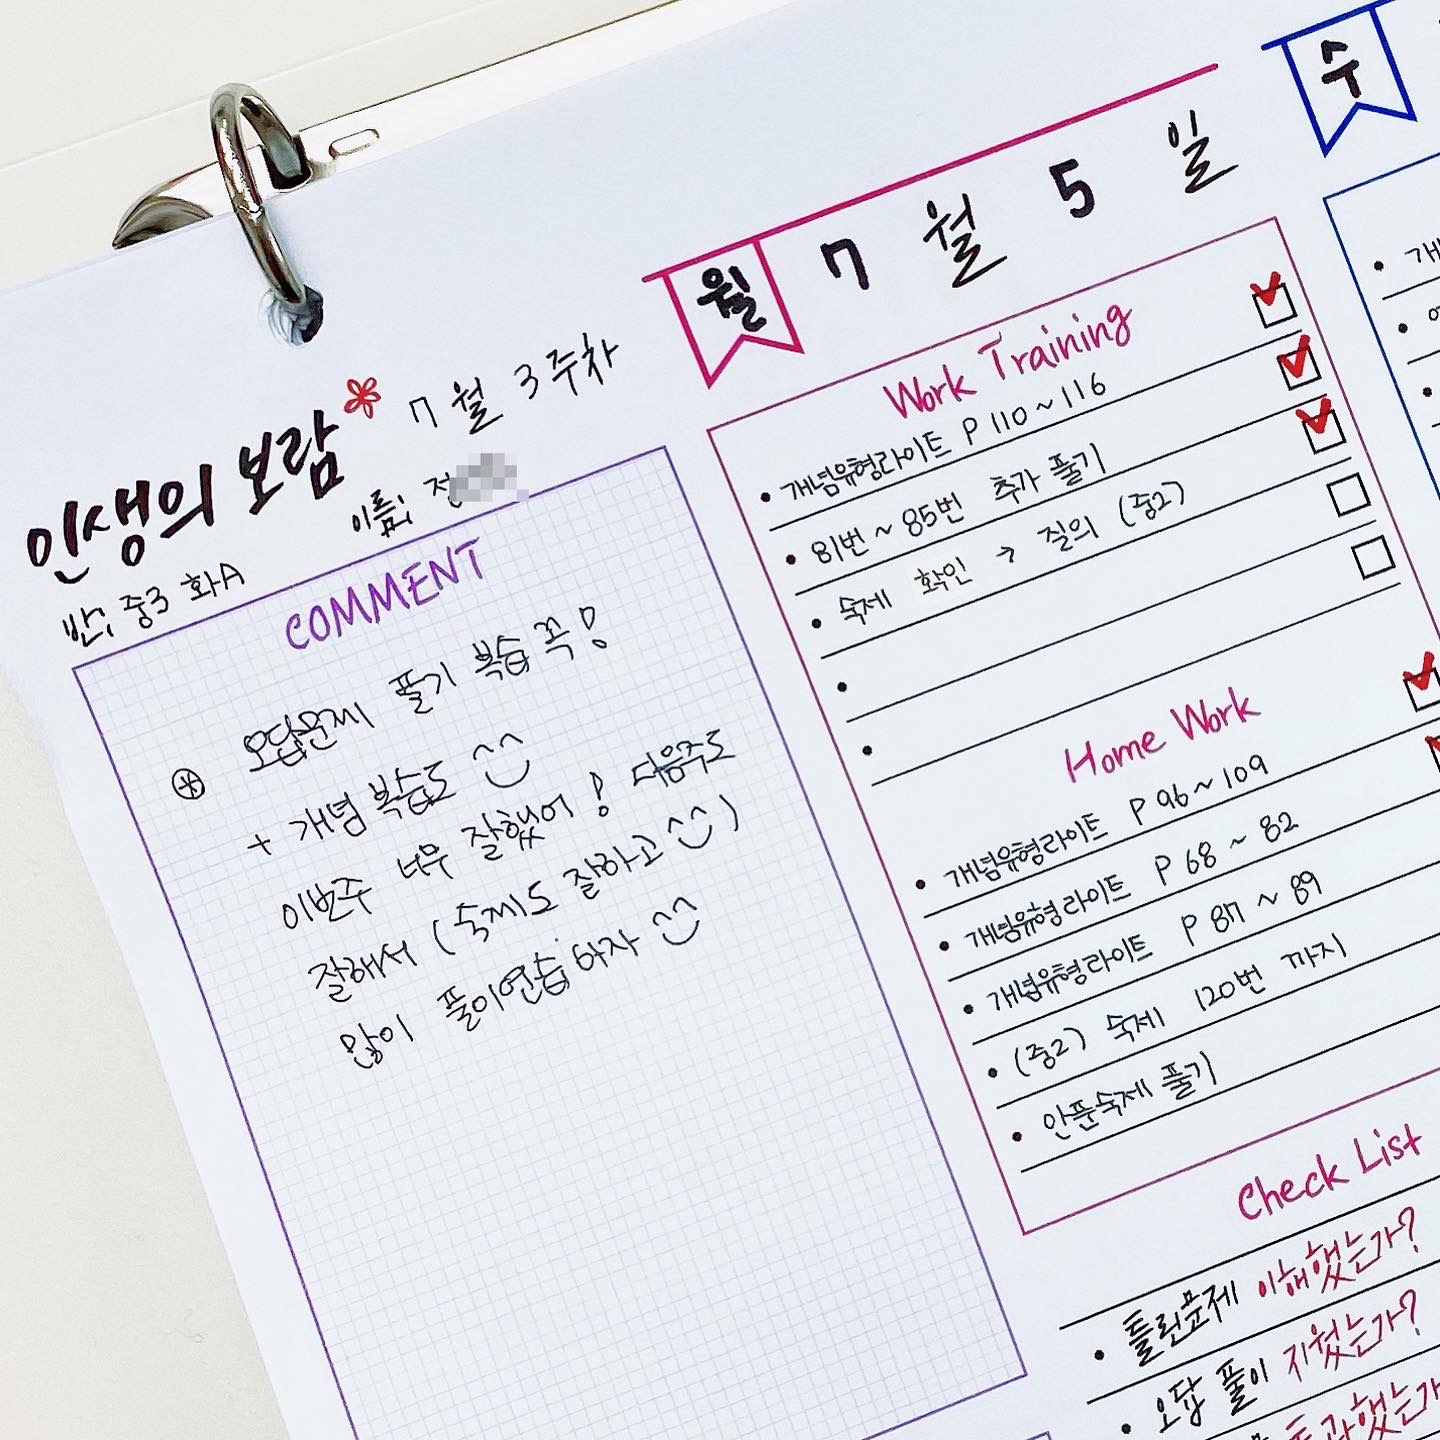 인생의 보람 7월 3주차
반; 중3 화A 이름; 전
COMMENT
⊛ 오답문제 풀기 복습 꼭!
+ 개념 복습도 ^^
이번주 너무 잘했어! 다음주도
잘해서 (숙제도 잘하고 ^^)
많이 풀이연습하자 ^^
월 7 월 5 일
Work Training
• 개념유형라이트 P 110 ~ 116
• 81번 ~ 85번 추가 풀기
• 숙제 확인 → 질의 (중2)
Home Work
• 개념유형라이트 P 96 ~ 109
• 개념유형라이트 P 68 ~ 82
• 개념유형라이트 P 87 ~ 89
• (중2) 숙제 120번 까지
• 안푼숙제 풀기
Check List
• 틀린문제 이해했는가?
• 오답 풀이 지웠는가?
수